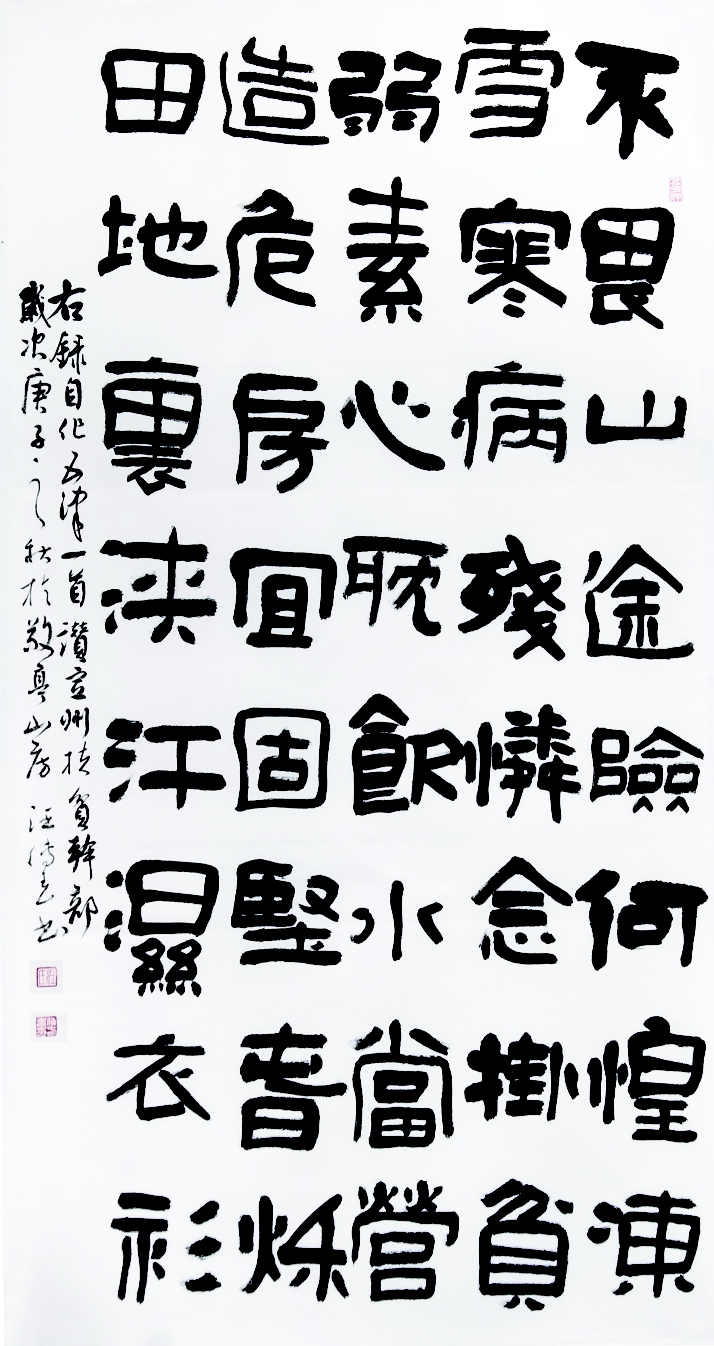 不畏山途險何惶凍
雪寒病殘憐念掛貧
弱素心耽飲水當營
造危房宜固堅耆烁
田地裏浹汗濕衣衫
右錄自作五律一首讚宣州扶貧幹部
歲次庚子之秋於敬亭山房 汪傳書